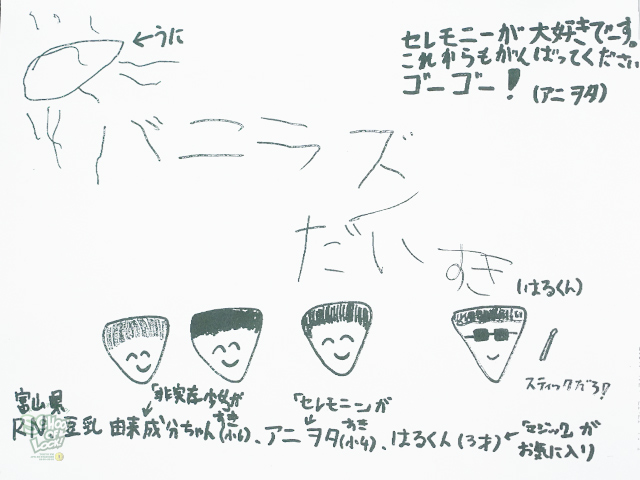 ←うに
セレモニーが大好きでーす。
これからもがんばってください
ゴーゴー!
(アニヲタ)
バニラズ
だいすき
(はるくん)
スティックだろ!
「非実在少女が
すき
「セレモニー」が
すき
富山県
RN 豆乳 由来成分ちゃん(小6)、アニヲタ(小4)、はるくん(3才)←「マジック」が
お気に入り